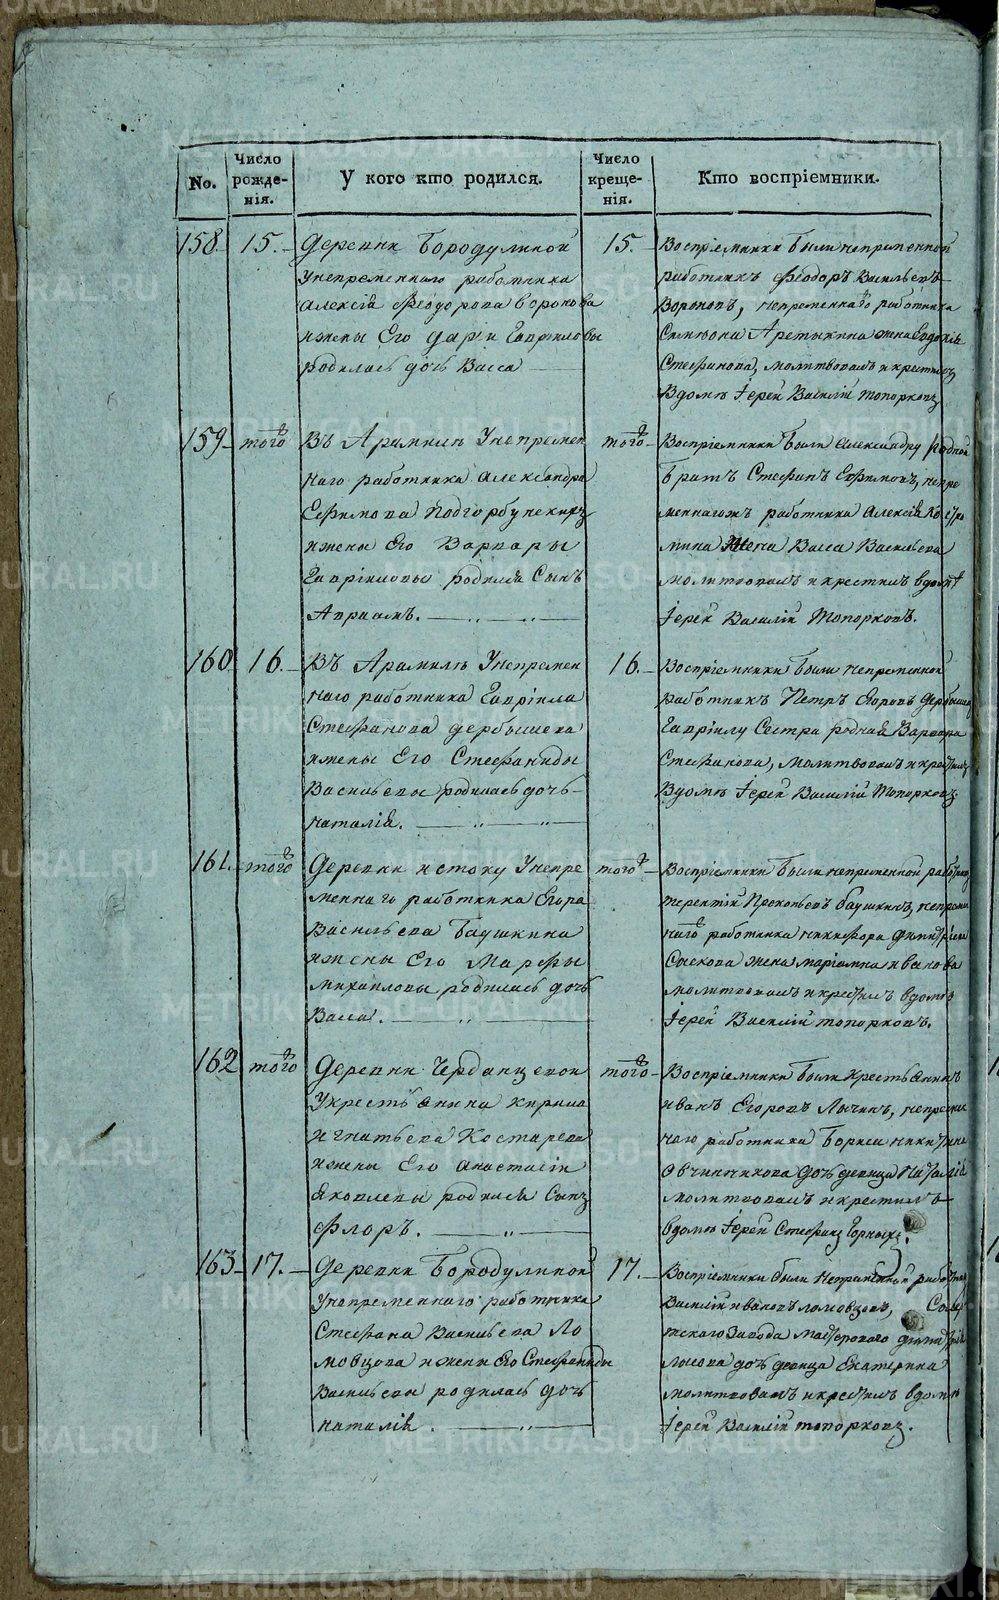 No.
Число рожде-нія.
У кого кто родился.
Число креще-нія.
Кто воспріемники.
158. 15.
деревни Бородулиной
унепременнаго работника
Алексія Феодорова Воронова
ижены Его Даріи Гавриловы
родилась дочь Васса
15.
Воспріемники были непременной
работникъ Феодоръ Васильевъ
Вороновъ, непременнаго работника
Симиона Аретькина жена Евдокія
Стефанова, молитвовалъ икрестилъ
Вдомѣ Іерей Василій Топорковъ
159 того
Въ Арамилѣ Унепремен
наго работника Александра
Ефимова Подгорбунскихъ
ижены Его Варвары
Гавриловы родился Сынъ
Авраамъ.
того
Воспріемники были Александру родной
братъ Стефанъ Ефимовъ, непре
меннагожъ работника Алексія
мина Жена Васса Васильева
молитвовалъ икрестилъ вдомѣ
Іерей Василій Топорковъ.
160 16.
Въ Арамилѣ Унепремен
наго работника Гавріила
Стефанова Дербышева
ижены Его Стефаниды
Васильевы родилась дочь
Наталія.
16.
Воспріемники были непременной
работникъ Петръ Егоровъ Дербышевъ
Гавріилу Сестра родная Варвара
Стефанова, молитвовалъ икрестилъ
Вдомѣ Іерей Василій Топорковъ
161. того
Деревни истоку Унепре
меннаго работника Егора
Васильева Баушкина
ижены Его Марфы
Михайловы родилась дочь
Васса.
того
Воспріемники были непременной работникъ
терентій Прокопьевъ Баушкинъ, непремен
наго работника никифора Димитріева
Сыскова жена маріамна иванова
молитвовалъ икрестилъ вдомѣ
Іерей Василій топорковъ.
162 того
Деревни Черданцевой
Укрестьянина кирила
игнатьева Костарева
ижены Его Анастасіи
Яковлевы родился Сынъ
Флоръ.
того
Воспріемники были Крестьянинъ
иванъ Егоровъ Лычинъ, непремен
наго работника Бориса никитина
Овчинникова дочь девица Наталія
молитвовалъ икрестилъ
вдомѣ Іерей Стефанъ Горныхъ.
163 17.
Деревни Бородулиной
унепременнаго работника
Стефана Васильева Ло
мовцова ижены Его Стефаниды
Васильевы родилась дочь
наталія.
17.
Воспріемники были Непременной работникъ
Василій ивановъ ломовцовъ, Сысер
тскаго Завода мастероваго димитрія
Лосева дочь девица Екатерина
молитвовалъ икрестилъ вдомѣ
Іерей Василій топорковъ.
METRIKI.GASO-URAL.RU